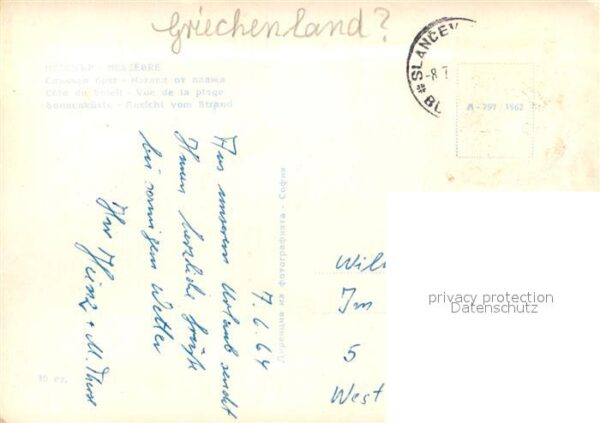 Griechenland?
НЕСЕБЪР - MESSEBRE
Слънчев бряг - Изглед от плажа
Côte du Soleil - Vue de la plage
Sonnenküste - Ansicht vom Strand
*SLANČEV
-8.7
BU
A-757 1962
7.6.64
Aus unserem Urlaub sendet
Ihnen herzliche Grüße
bei sonnigem Wetter
Ihr Heinz + M.
фотографията - София
10 ст.
Wil
Im
5
West
privacy protection
Datenschutz